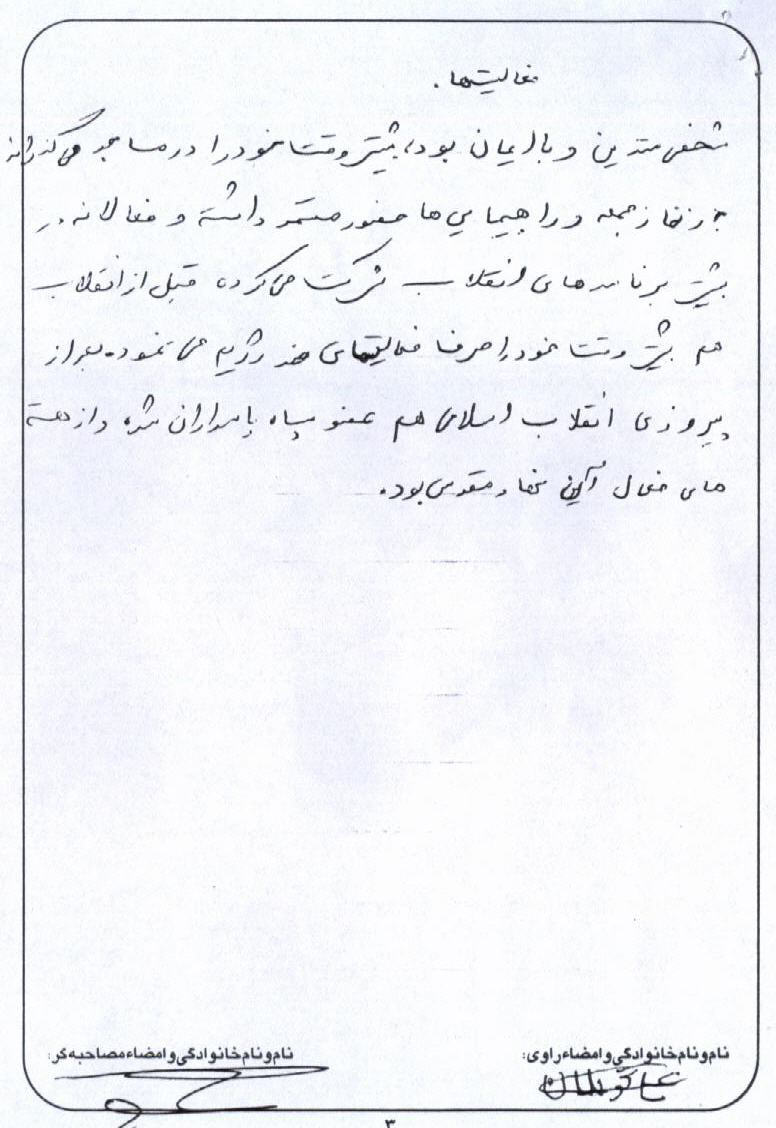 فعالیتها.
شخص متدین و باایمان بود، بیشتر وقت خود را در مساجد می گذراند
در نماز جمعه و راهپیمایی ها حضور مستمر داشته و فعالانه در
بیشتر برنامه های انقلاب شرکت می کرده قبل از انقلاب
هم بیشتر وقت خود را صرف فعالیتهای ضد رژیم می نموده بعد از
پیروزی انقلاب اسلامی هم عضو سپاه پاسداران شده و از هسته
های فعال آن نهاد مقدس بود.
نام و نام خانوادگی و امضاء راوی:
نام و نام خانوادگی و امضاء مصاحبه گر:
۳